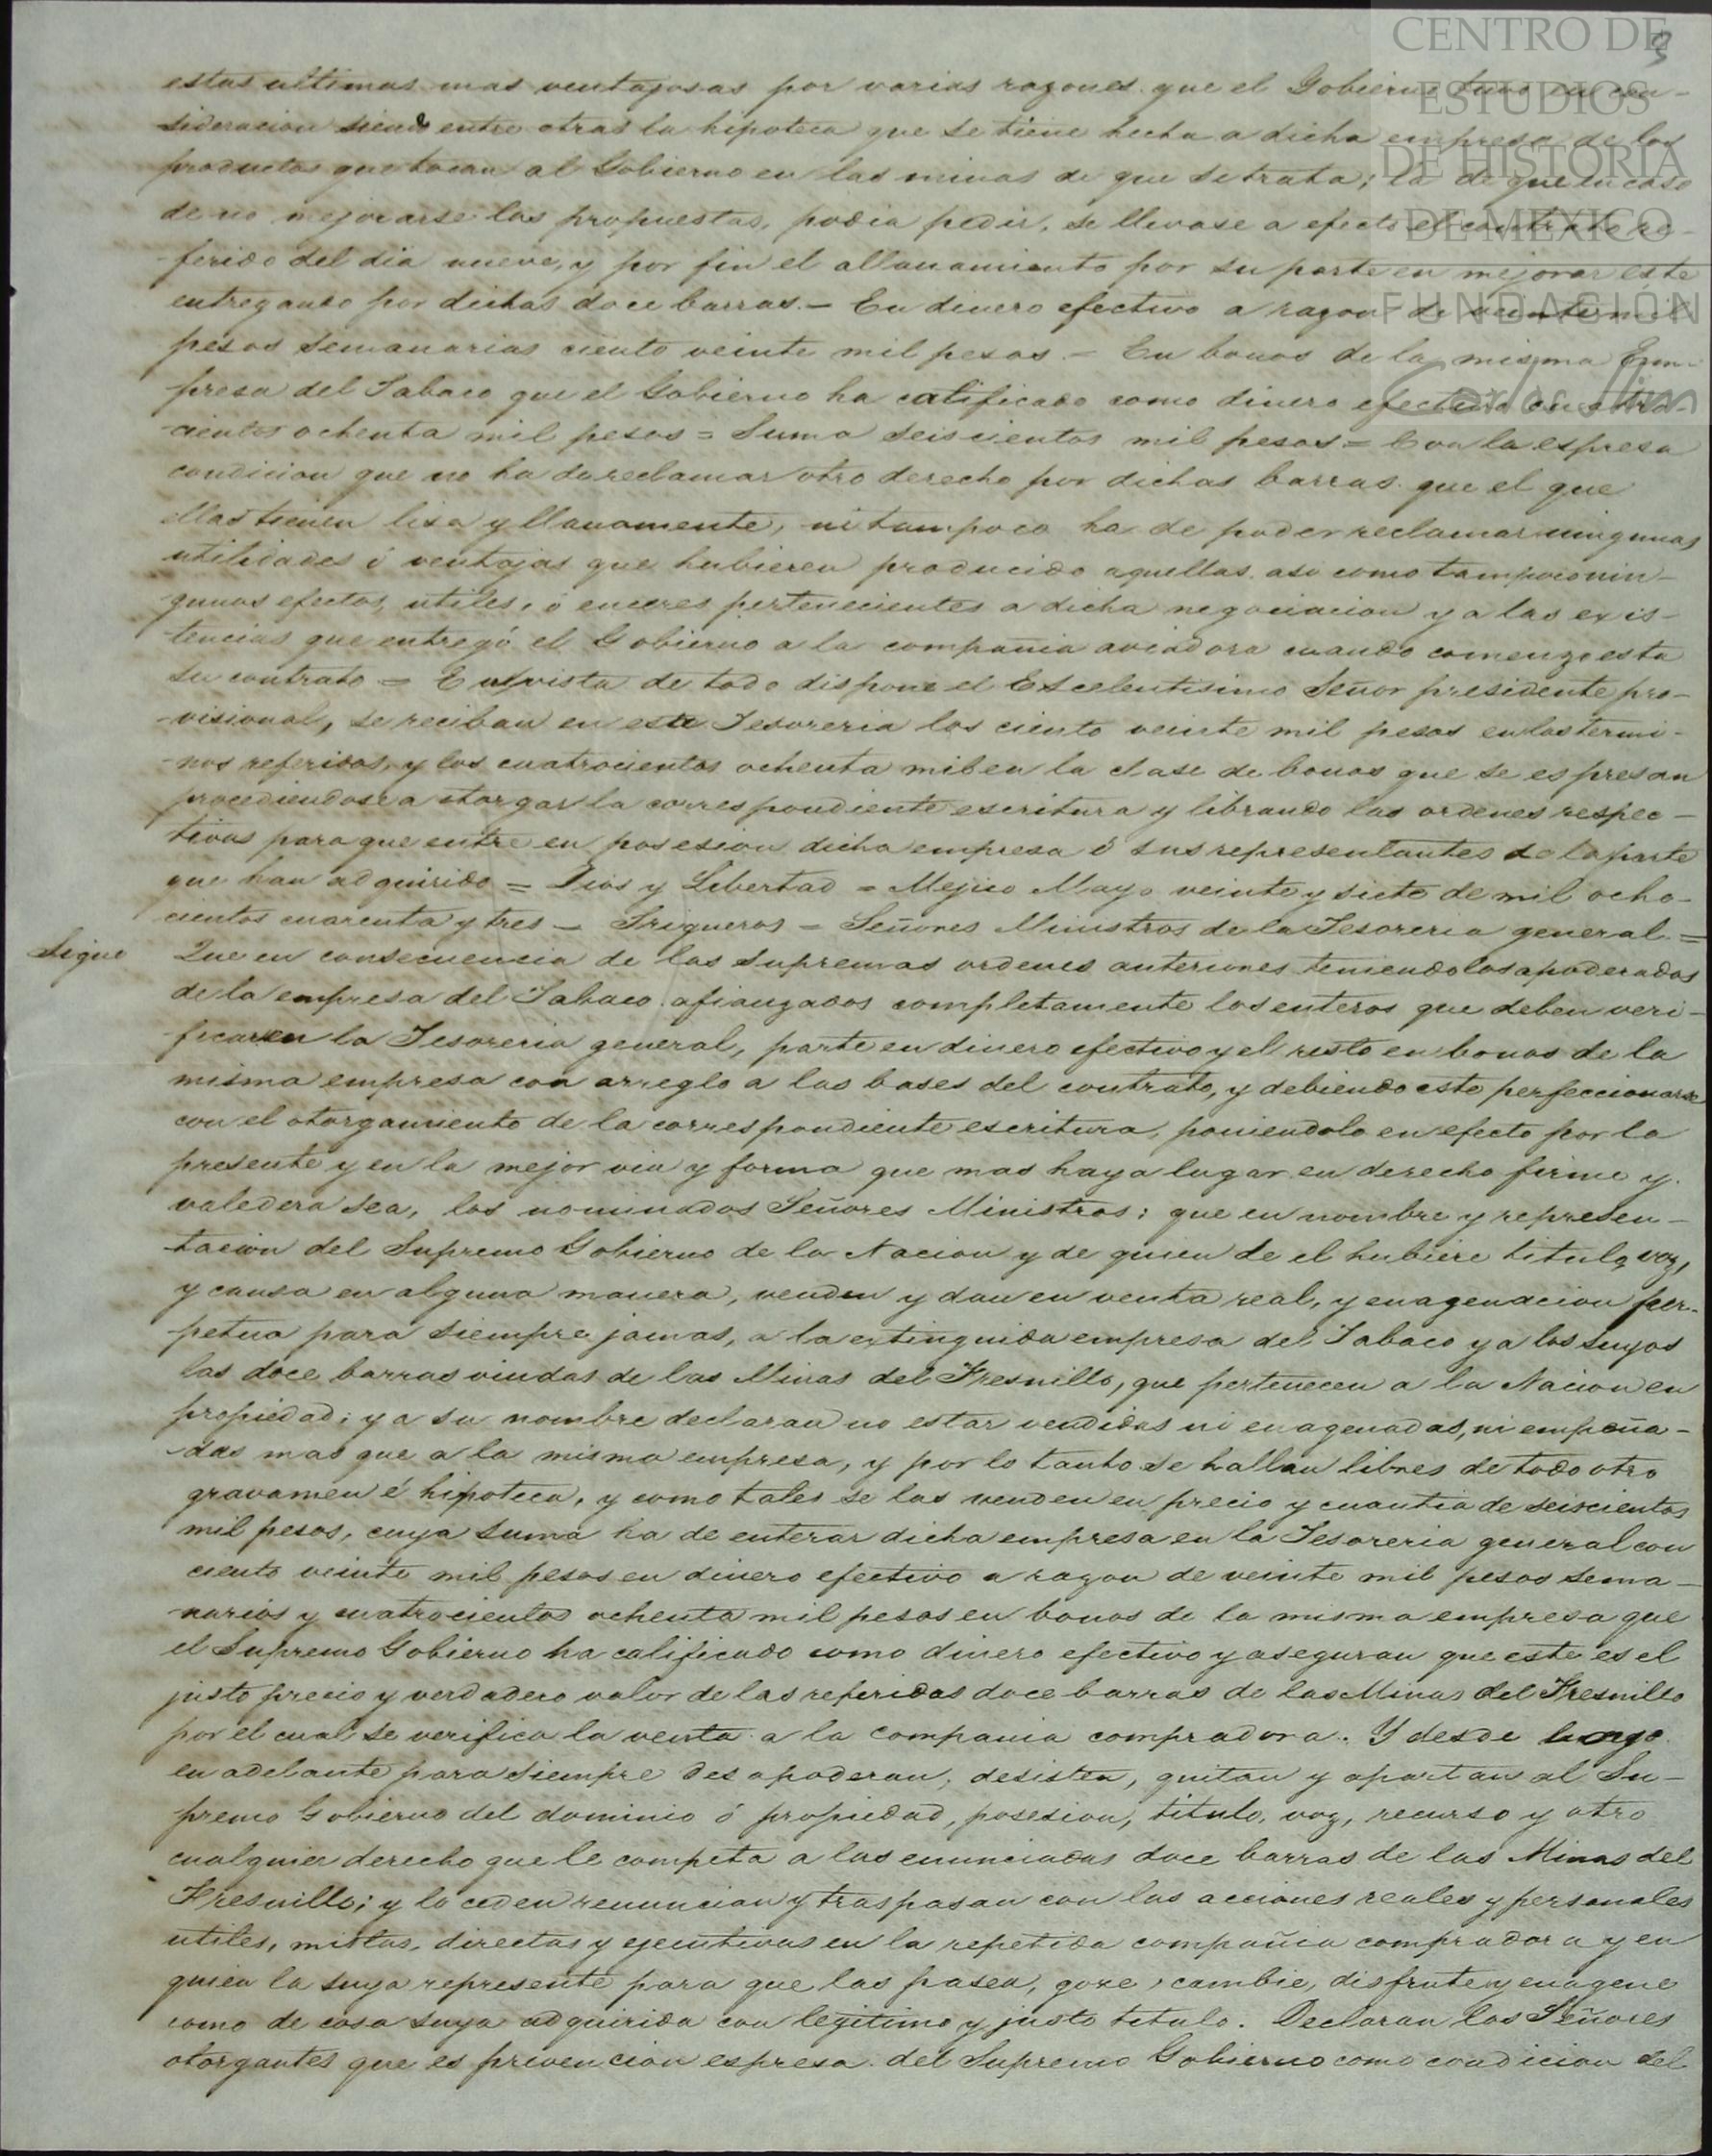 CENTRO DE
ESTUDIOS
DE HISTORIA
DE MEXICO
FUNDACION
Carlos Slim
3
estas ultimas mas ventajosas por varias razones que el Gobierno tuvo en con-
sideracion siendo entre otras la hipoteca que se tiene hecha a dicha empresa de los
productos que tocan al Gobierno en las minas de que se trata; la de que en caso
de no mejorarse las propuestas, podia pedir, se llevase a efecto el contrato re-
-ferido del dia nueve, y por fin el allanamiento por su parte en mejorar este
entregando por dichas doce barras. — En dinero efectivo a razon de veinte mil
pesos semanarios ciento veinte mil pesos. — En bonos de la misma Em-
presa del Tabaco que el Gobierno ha calificado como dinero efectivo cuatro-
-cientos ochenta mil pesos = Suma seiscientos mil pesos = Con la espresa
condicion que no ha de reclamar otro derecho por dichas barras que el que
ellas tienen lisa y llanamente, ni tampoco ha de poder reclamar ningunas
utilidades ó ventajas que hubieren producido aquellas, asi como tampoco nin-
gunos efectos, utiles, ó enceres pertenecientes a dicha negociacion y a las exis-
tencias que entregó el Gobierno a la compañia aviadora cuando comenzo esta
su contrato = En vista de todo dispone el Escelentisimo Señor presidente pro-
-visional, se reciban en esta Tesoreria los ciento veinte mil pesos en los termi-
-nos referidos, y los cuatrocientos ochenta mil en la clase de bonos que se espresan
procediendose a otorgar la correspondiente escritura y librando las ordenes respec-
tivas para que entre en posesion dicha empresa ó sus representantes de la parte
que han adquirido = Dios y Libertad = Mejico Mayo veinte y siete de mil ocho-
cientos cuarenta y tres — Trigueros = Señores Ministros de la Tesoreria general. =
Sigue Que en consecuencia de las supremas ordenes anteriores teniendo los apoderados
de la empresa del Tabaco afianzados completamente los enteros que deben veri-
ficar en la Tesoreria general, parte en dinero efectivo y el resto en bonos de la
misma empresa con arreglo a las bases del contrato, y debiendo este perfeccionarse
con el otorgamiento de la correspondiente escritura, poniendolo en efecto por la
presente y en la mejor via y forma que mas haya lugar en derecho firme y
valedera sea, los nominados Señores Ministros: que en nombre y represen-
-tacion del Supremo Gobierno de la Nacion y de quien de el hubiere titulo, voz,
y causa en alguna manera, venden y dan en venta real, y enagenacion per-
petua para siempre jamas, a la extinguida empresa del Tabaco y a los suyos
las doce barras viudas de las Minas del Fresnillo, que pertenecen a la Nacion en
propiedad; y a su nombre declaran no estar vendidas ni enagenadas, ni empeña-
-das mas que a la misma empresa, y por lo tanto se hallan libres de todo otro
gravamen é hipoteca, y como tales se las venden en precio y cuantia de seiscientos
mil pesos, cuya suma ha de enterar dicha empresa en la Tesoreria general con
ciento veinte mil pesos en dinero efectivo a razon de veinte mil pesos sema-
-narios y cuatrocientos ochenta mil pesos en bonos de la misma empresa que
el Supremo Gobierno ha calificado como dinero efectivo y aseguran que este es el
justo precio y verdadero valor de las referidas doce barras de las Minas del Fresnillo
por el cual se verifica la venta a la compania compradora. Y desde luego
en adelante para siempre desapoderan, desisten, quitan y apartan al Su-
premo Gobierno del dominio ó propiedad, posesion, titulo, voz, recurso y otro
cualquier derecho que le competa a las enunciadas doce barras de las Minas del
Fresnillo; y lo ceden renuncian y traspasan con las acciones reales y personales
utiles, mistas, directas y ejecutivas en la repetida compañia compradora y en
quien la suya represente para que las posea, goze, cambie, disfrute y enagene
como de cosa suya adquirida con legitimo y justo titulo. Declaran los Señores
otorgantes que es prevencion espresa del Supremo Gobierno como condicion del